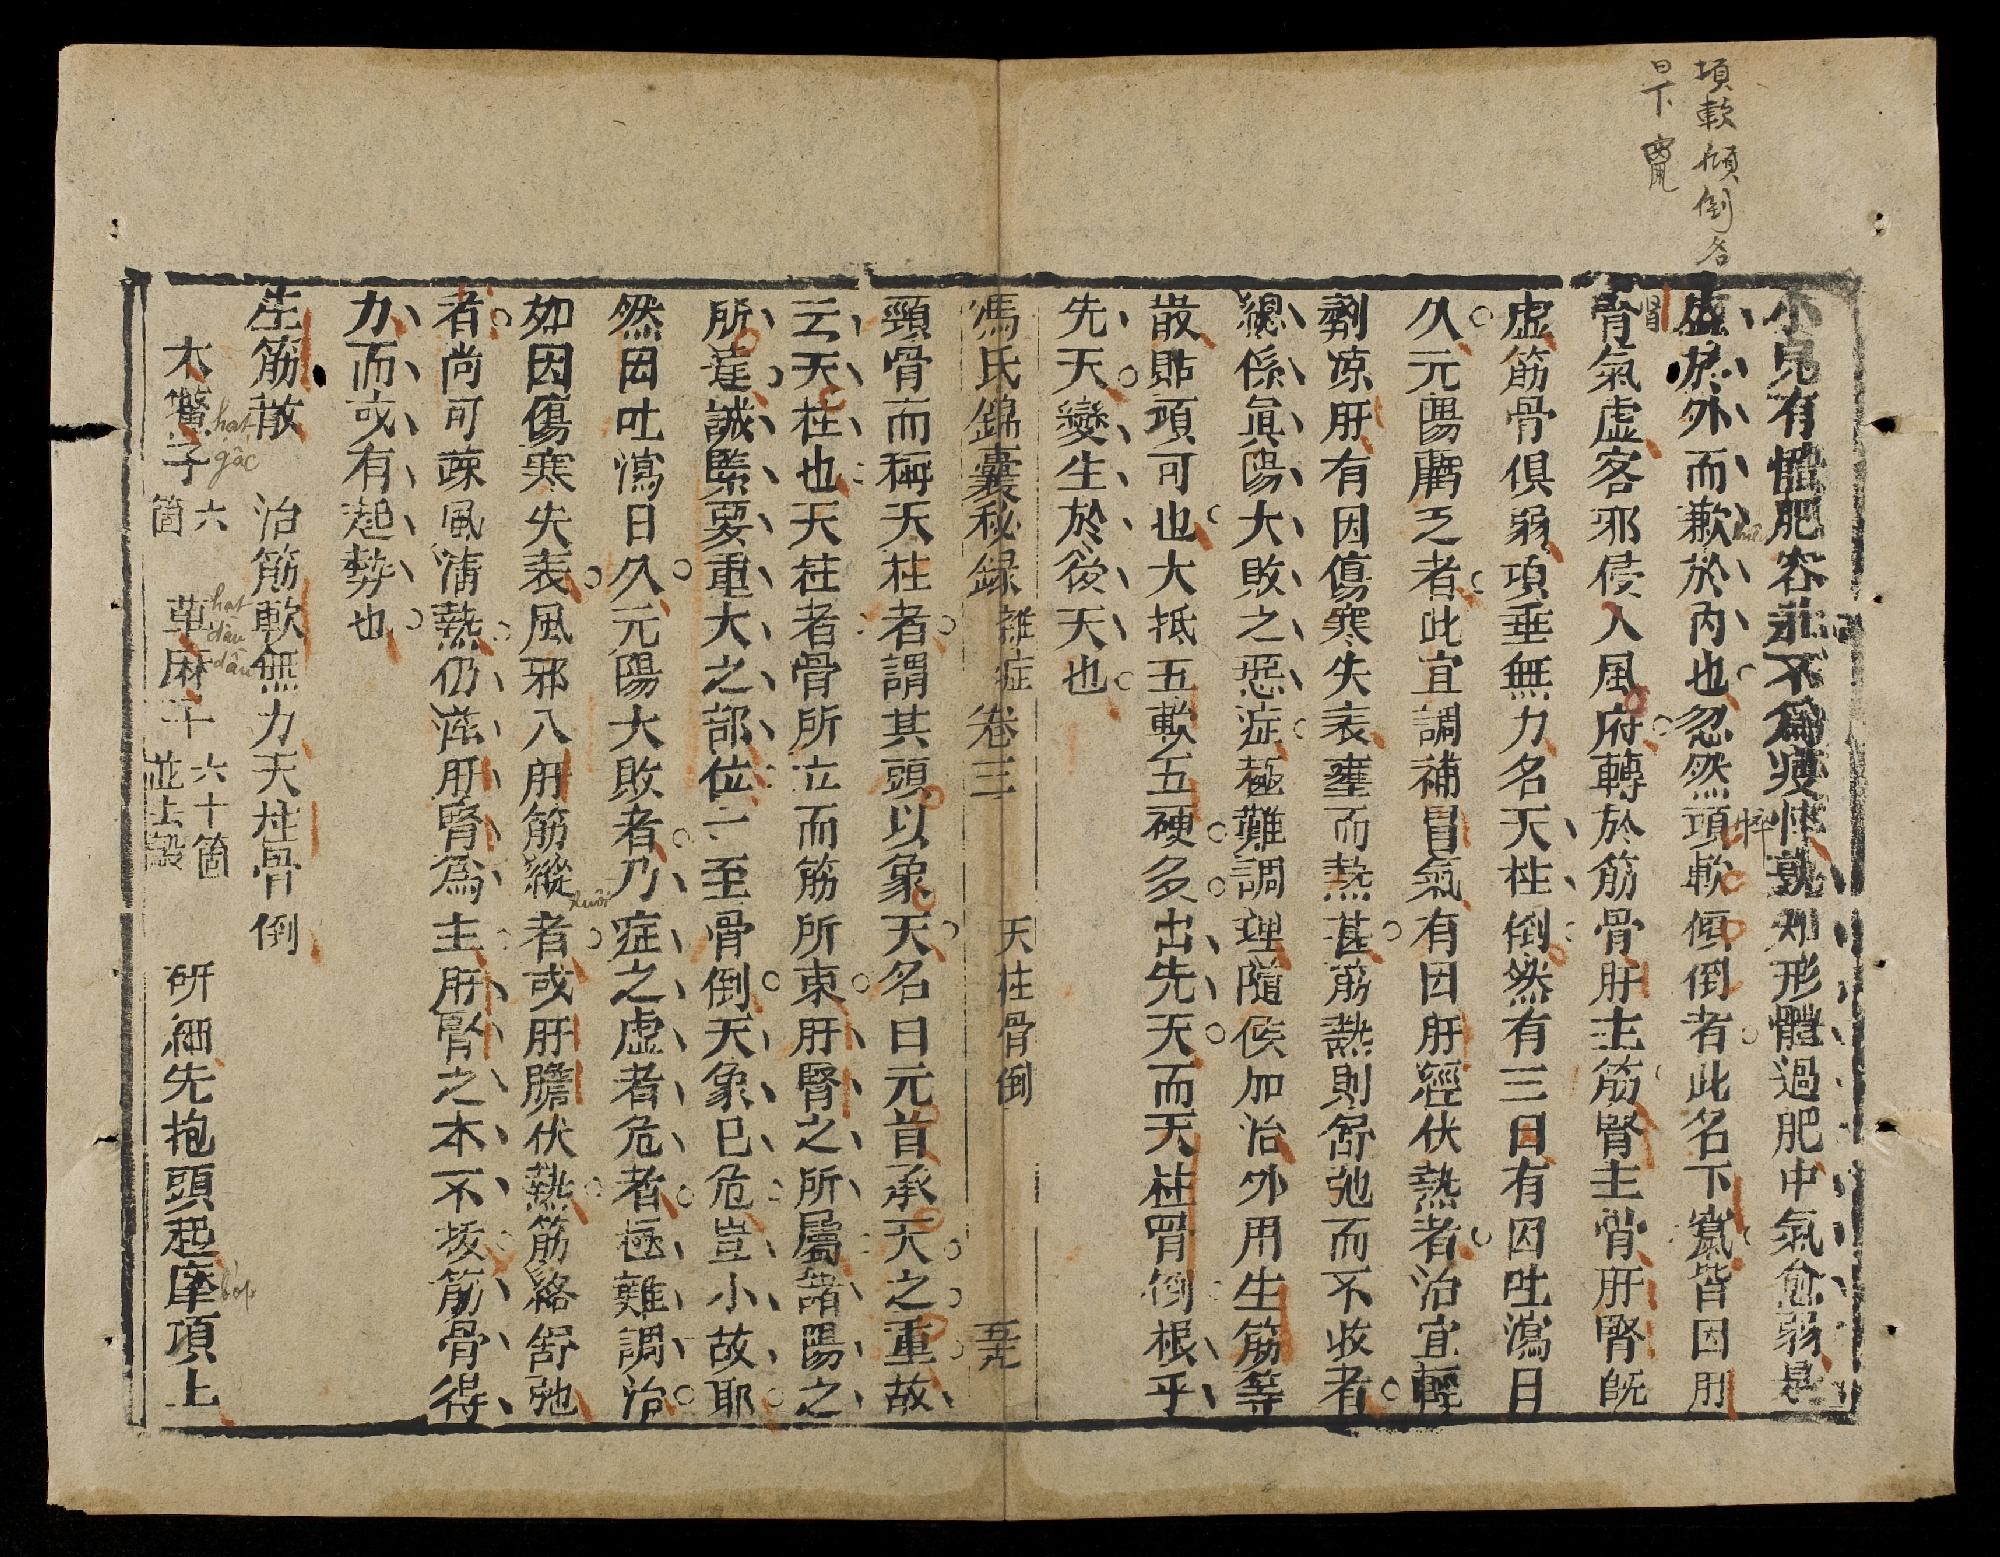 項軟傾倒名
曰下竄
小兒有體肥容莊不爲瘦悴孰知形體過肥中氣愈弱是
盛於外而歉於內也忽然項軟傾倒者此名下竄皆因肝
腎氣虛客邪侵入風府轉於筋骨肝主筋腎主骨肝腎旣
虛筋骨俱弱項垂無力名天柱倒然有三曰有因吐瀉日
久元陽虧乏者此宜調補胃氣有因肝經伏熱者治宜輕
劑凉肝有因傷寒失表壅而熱甚筋熱則舒弛而不收者
總係眞陽大敗之惡症極難調理隨候加治外用生筋等
散貼項可也大抵五軟五硬多出先天而天柱骨倒根乎
先天變生於後天也
馮氏錦囊秘録 雜症 卷三 天柱骨倒 五九
頸骨而稱天柱者謂其頭以象天名曰元首承天之重故
云天柱也天柱者骨所立而筋所束肝腎之所屬諸陽之
所達誠緊要重大之部位二至骨倒天象已危豈小故耶
然因吐瀉日久元陽大敗者乃症之虛者危者極難調治
如因傷寒失表風邪入肝筋縱者或肝膽伏熱筋絡舒弛
者尚可疎風淸熱仍滋肝腎爲主肝腎之本不拔筋骨得
力而或有起勢也
生筋散 治筋軟無力天柱骨倒
木鱉子 六箇 萆麻子 六十箇並去殼 研細先抱頭起摩項上
腎
悴
hạt gấc
hạt dầu dầu